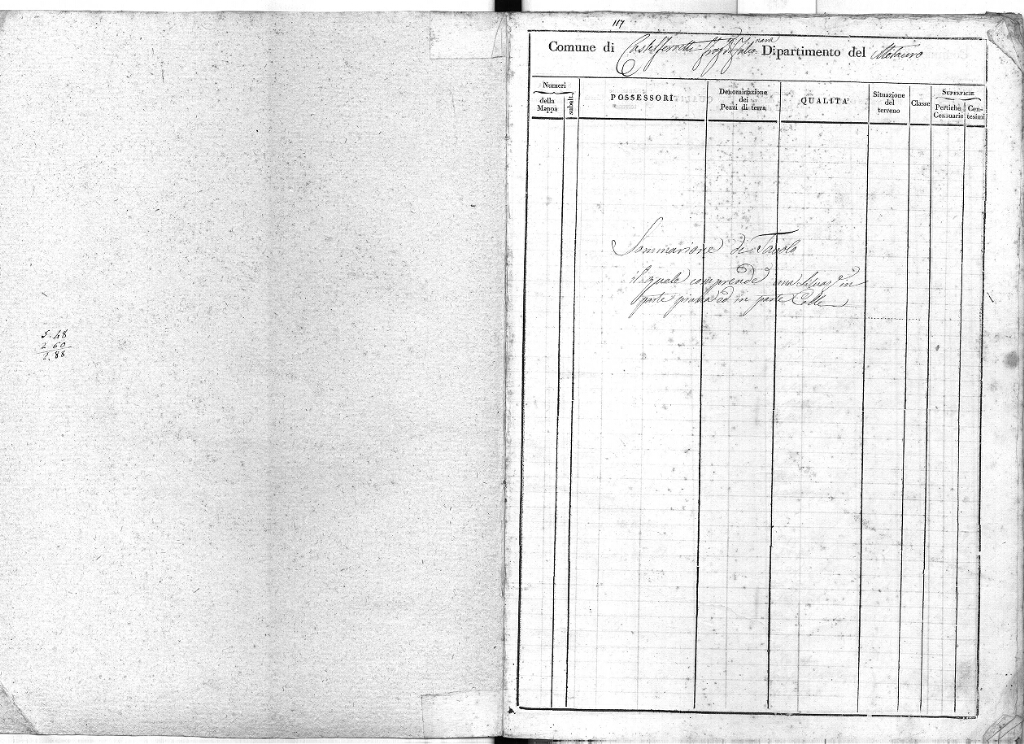 5.48
2.60
2.88
117
Comune di Castelferretti Dipartimento del Metauro
Numeri
della Mappa
subalt.
POSSESSORI
Denominazione dei Pezzi di terra
QUALITA'
Situazione del terreno
Classe
SUPERFICIE
Pertiche Censuarie
Centesimi
Sommarione di Tavole
Il quale comprende in
parte piana ed in parte Colle